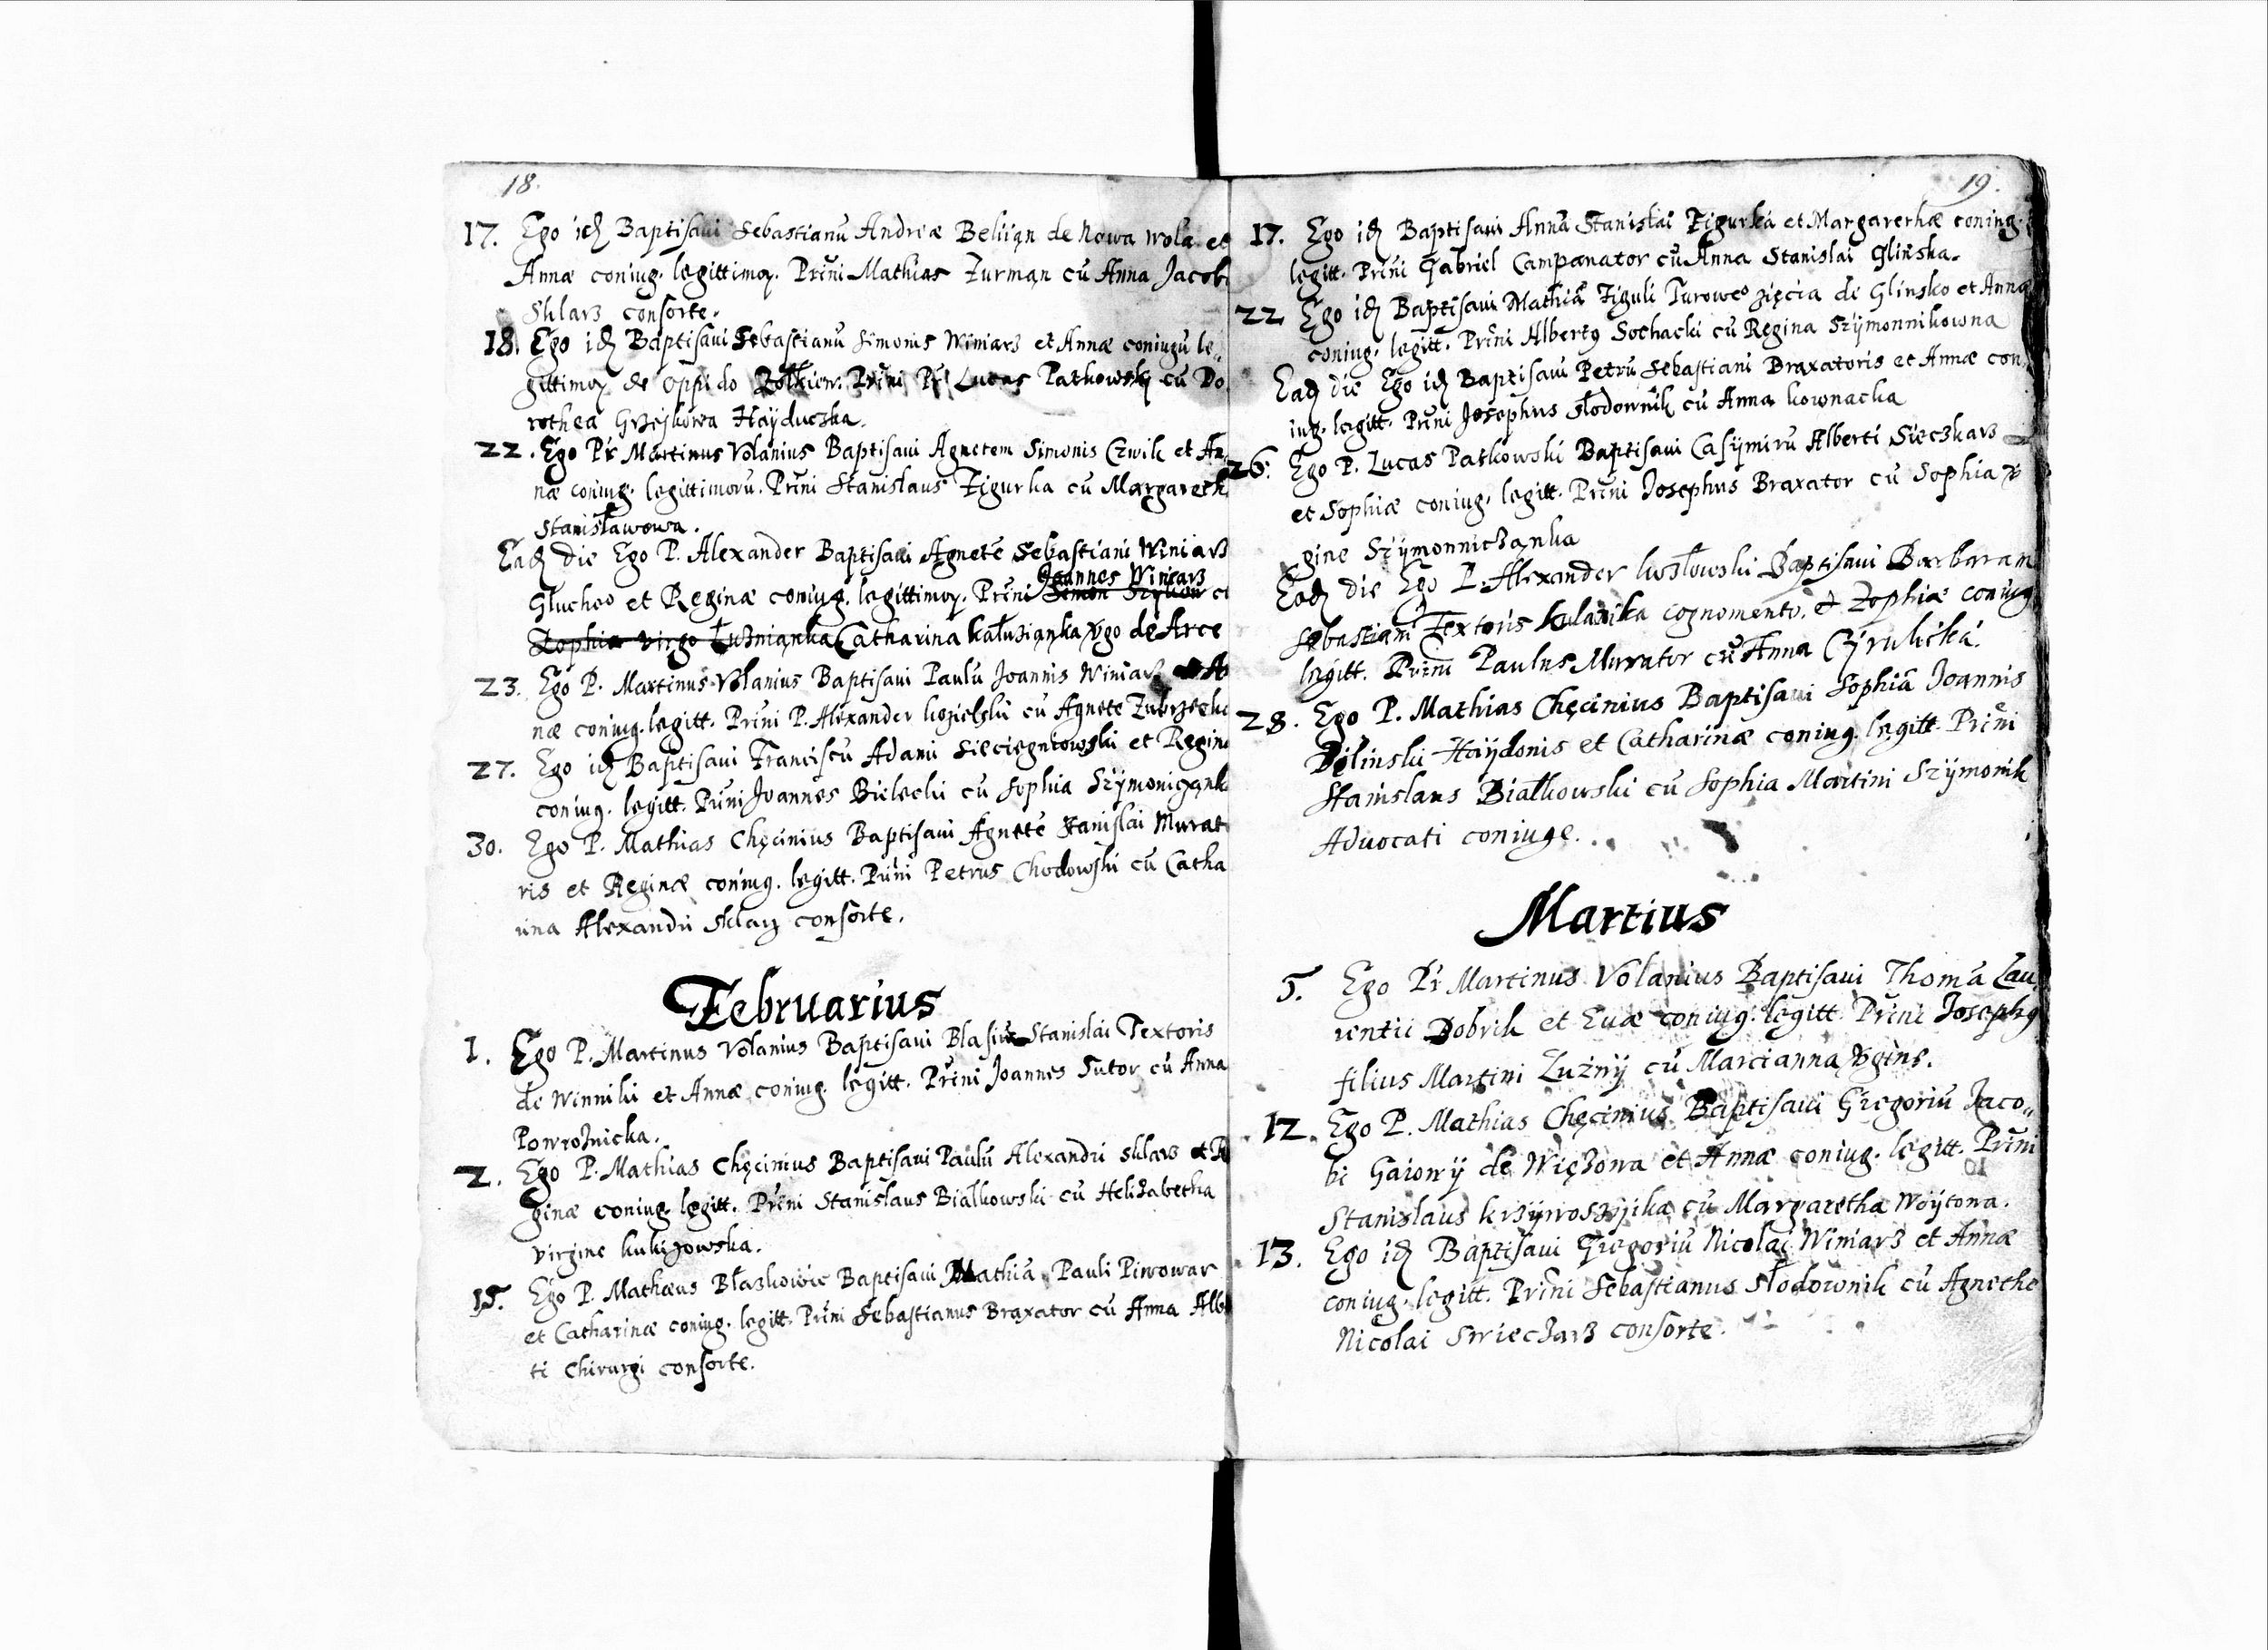 18.
17. Ego idē Baptisaui Sebastianū Andreæ Beliign de Nowa wola et
Annæ coniug. legittimoꝝ. Prīni Mathias Zurman cū Anna Jacob
Sklarz consorte.
18. Ego idē Baptisaui Sebastianū Simonis Winiarz et Annæ coniugū le„
gittimoꝝ de oppido Zołkiew. Prīni Pr Lucas Patkowsky cū Do
rothea Grzejkowa Haÿduczka.
22. Ego Pr Martinus Volanius Baptisaui Agnetem Simonis Czwik et An
næ coniug. legittimorū. Prīni Stanislaus Figurka cū Margareth
Stanisławowa.
Eadē die Ego P. Alexander Baptisaui Agnetē Sebastiani Winiarz
Joannes Winiarz
Głucheo et Reginæ coniug. legittimoꝝ. Prīni Simon cū
Zophia virgo Łuznianka Catharina Kałuzianka v̄go de Arce
23. Ego P. Martinus Volanius Baptisaui Paulū Joannis Winiarz An
næ coniug. legitt. Prīni P. Alexander Kozielski cū Agnete Zubrzecka
27. Ego idē Baptisaui Franciscū Adami Sieciegniowski et Regin
coniug. legitt. Prīni Joannes Bielecki cū Sophia Szÿmoniczank
30. Ego P. Mathias Chęcinius Baptisaui Agnetē Stanislai Murat
ris et Reginæ coniug. legitt. Prīni Petrus Chodowski cū Catha
rina Alexandri Sklarz consorte.
Februarius
1. Ego P. Martinus Volanius Baptisaui Blasiū Stanislai Textoris
de Winniki et Annæ coniug. legitt. Prīni Joannes Sutor cū Anna
Powroźnicka.
2. Ego P. Mathias Chęcinius Baptisaui Paulū Alexandri Sklarz et R
ginæ coniug. legitt. Prīni Stanislaus Białkowski cū Helizabetha
virgine Kukizowska.
15. Ego P. Mathæus Błazkowic Baptisaui Mathiā Pauli Piwowar
et Catharinæ coniug. legitt. Prīni Sebastianus Braxator cū Anna Alb
ti Chirurgi consorte.
19.
17. Ego idē Baptisaui Annā Stanislai Figurka et Margarethæ coniug.
legitt. Prīni Gabriel Campanator cū Anna Stanislai Glinska.
22 Ego idē Baptisaui Mathiā Figuli Turoweo zięcia de Glinsko et Anna
coniug. legitt. Prīni Albertꝰ Sochacki cū Regina Szÿmonnikowna
Eadē die Ego idē Baptisaui Petrū Sebastiani Braxatoris et Annæ con
iug. legitt. Prīni Josephus Słodownik cū Anna Kownacka
26. Ego P. Lucas Patkowski Baptisaui Casÿmirū Alberti Sieczkarz
et Sophiæ coniug. legitt. Prīni Josephus Braxator cū Sophia v̄
gine Szÿmonniczanka
Eadē die Ego P. Alexander Kozłowski Baptisaui Barbaram
Sebastiani Textoris Kulanika cognomento, et Zophiæ coniug
legitt. Prīni Paulus Murator cū Anna Czÿrulicka.
28. Ego P. Mathias Chęcinius Baptisaui Sophiā Joannis
Bilinski Haÿdonis et Catharinæ coniug. legitt. Prīni
Stanislaus Białkowski cū Sophia Martini Szÿmonik
Aduocati coniuge.
Martius
5. Ego Pr Martinus Volanius Baptisaui Thomā Lau
rentii Dobrik et Euæ coniug. legitt. Prīni Josephꝰ
filius Martini Luźnÿ cū Marcianna v̄gine.
12. Ego P. Mathias Chęcinius Baptisaui Gregoriū Jaco„
bi Gaiowÿ de Więzowa et Annæ coniug. legitt. Prīni
Stanislaus Krzÿwoszÿika cū Margaretha Woÿtowa.
13. Ego idē Baptisaui Gregoriū Nicolai Winiarz et Annæ
coniug. legitt. Prīni Sebastianus Słodownik cū Agnethe
Nicolai Swieczarz consorte.